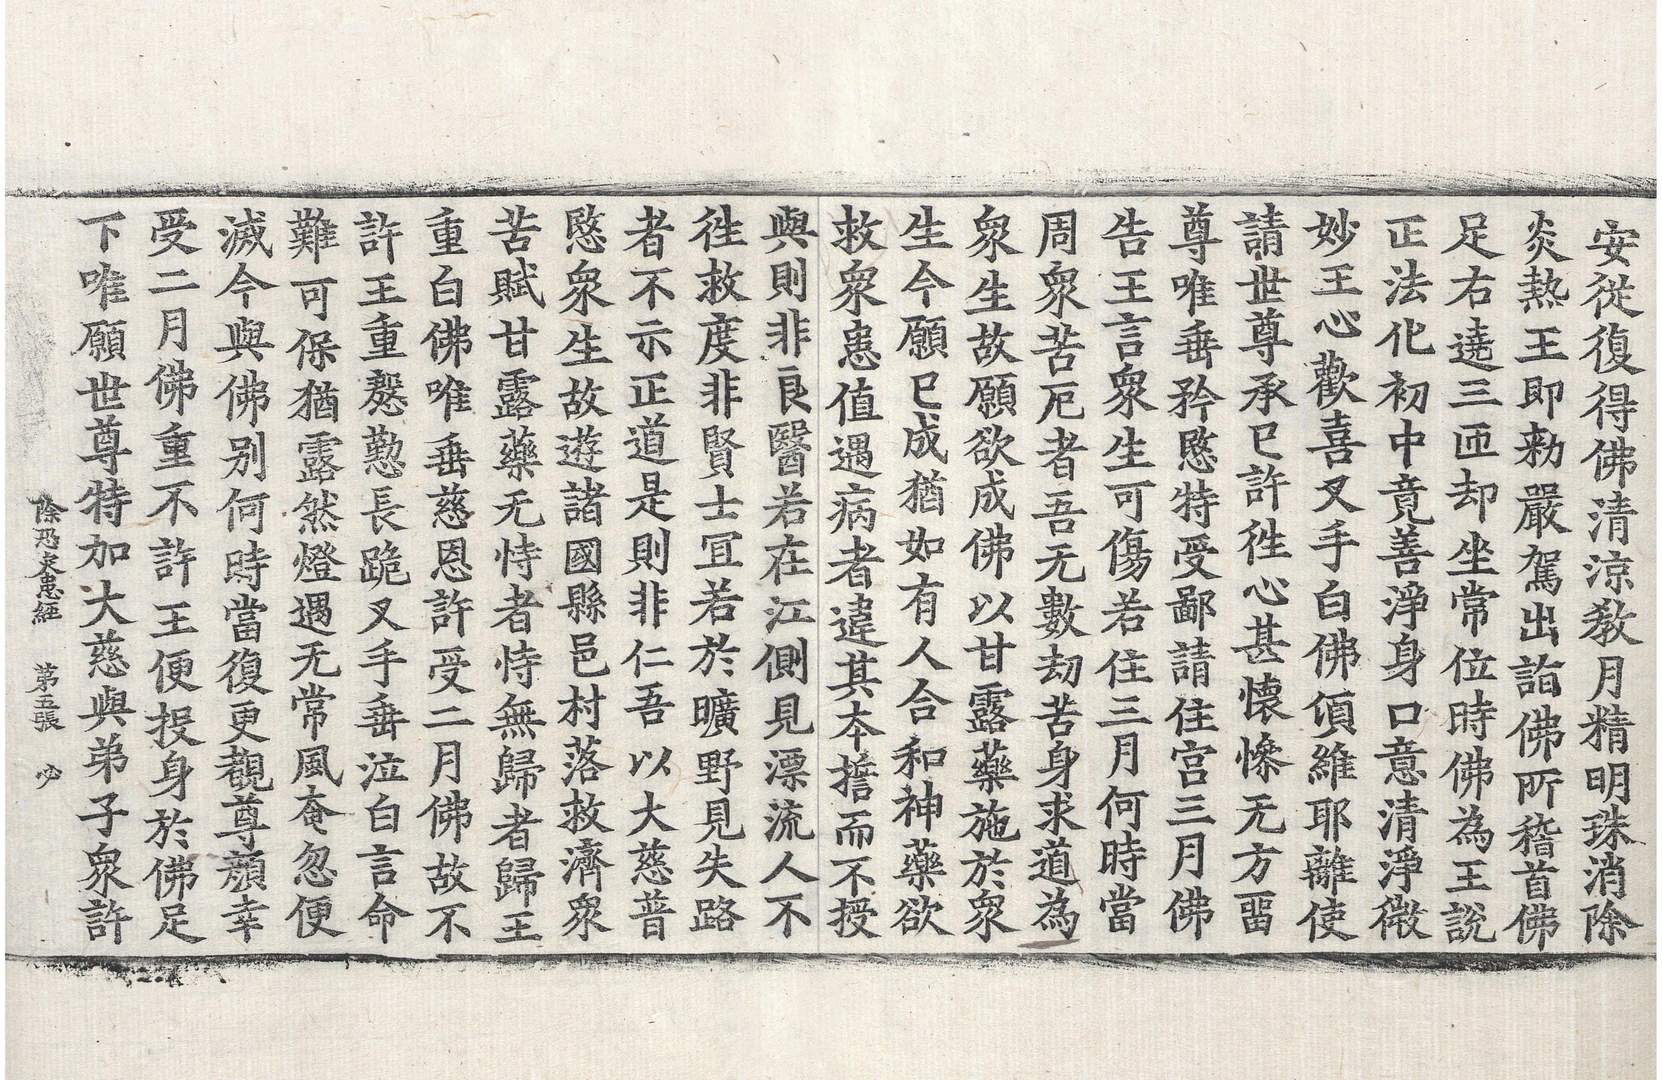 安從復得佛清涼教月精明珠消除
炎熱王即勑嚴駕出詣佛所稽首佛
足右遶三匝却坐常位時佛為王說
正法化初中竟善淨身口意清淨微
妙王心歡喜叉手白佛須維耶離使
請世尊承已許徃心甚懷慘无方畱
尊唯垂矜愍特受鄙請住宫三月佛
告王言衆生可傷若住三月何時當
周衆苦厄者吾无數劫苦身求道為
衆生故願欲成佛以甘露藥施於衆
生今願已成猶如有人合和神藥欲
救衆患值遇病者違其夲誓而不授
與則非良醫若在江側見漂流人不
徃救度非賢士宜若於曠野見失路
者不示正道是則非仁吾以大慈普
愍衆生故遊諸國縣邑村落救濟衆
苦賦甘露藥无恃者恃無歸者歸王
重白佛唯垂慈恩許受二月佛故不
許王重慇懃長跪叉手垂泣白言命
難可保猶露然燈遇无常風奄忽便
滅今與佛别何時當復更覩尊顔幸
受二月佛重不許王便投身於佛足
下唯願世尊特加大慈與弟子衆許
除恐灾患經 第五張